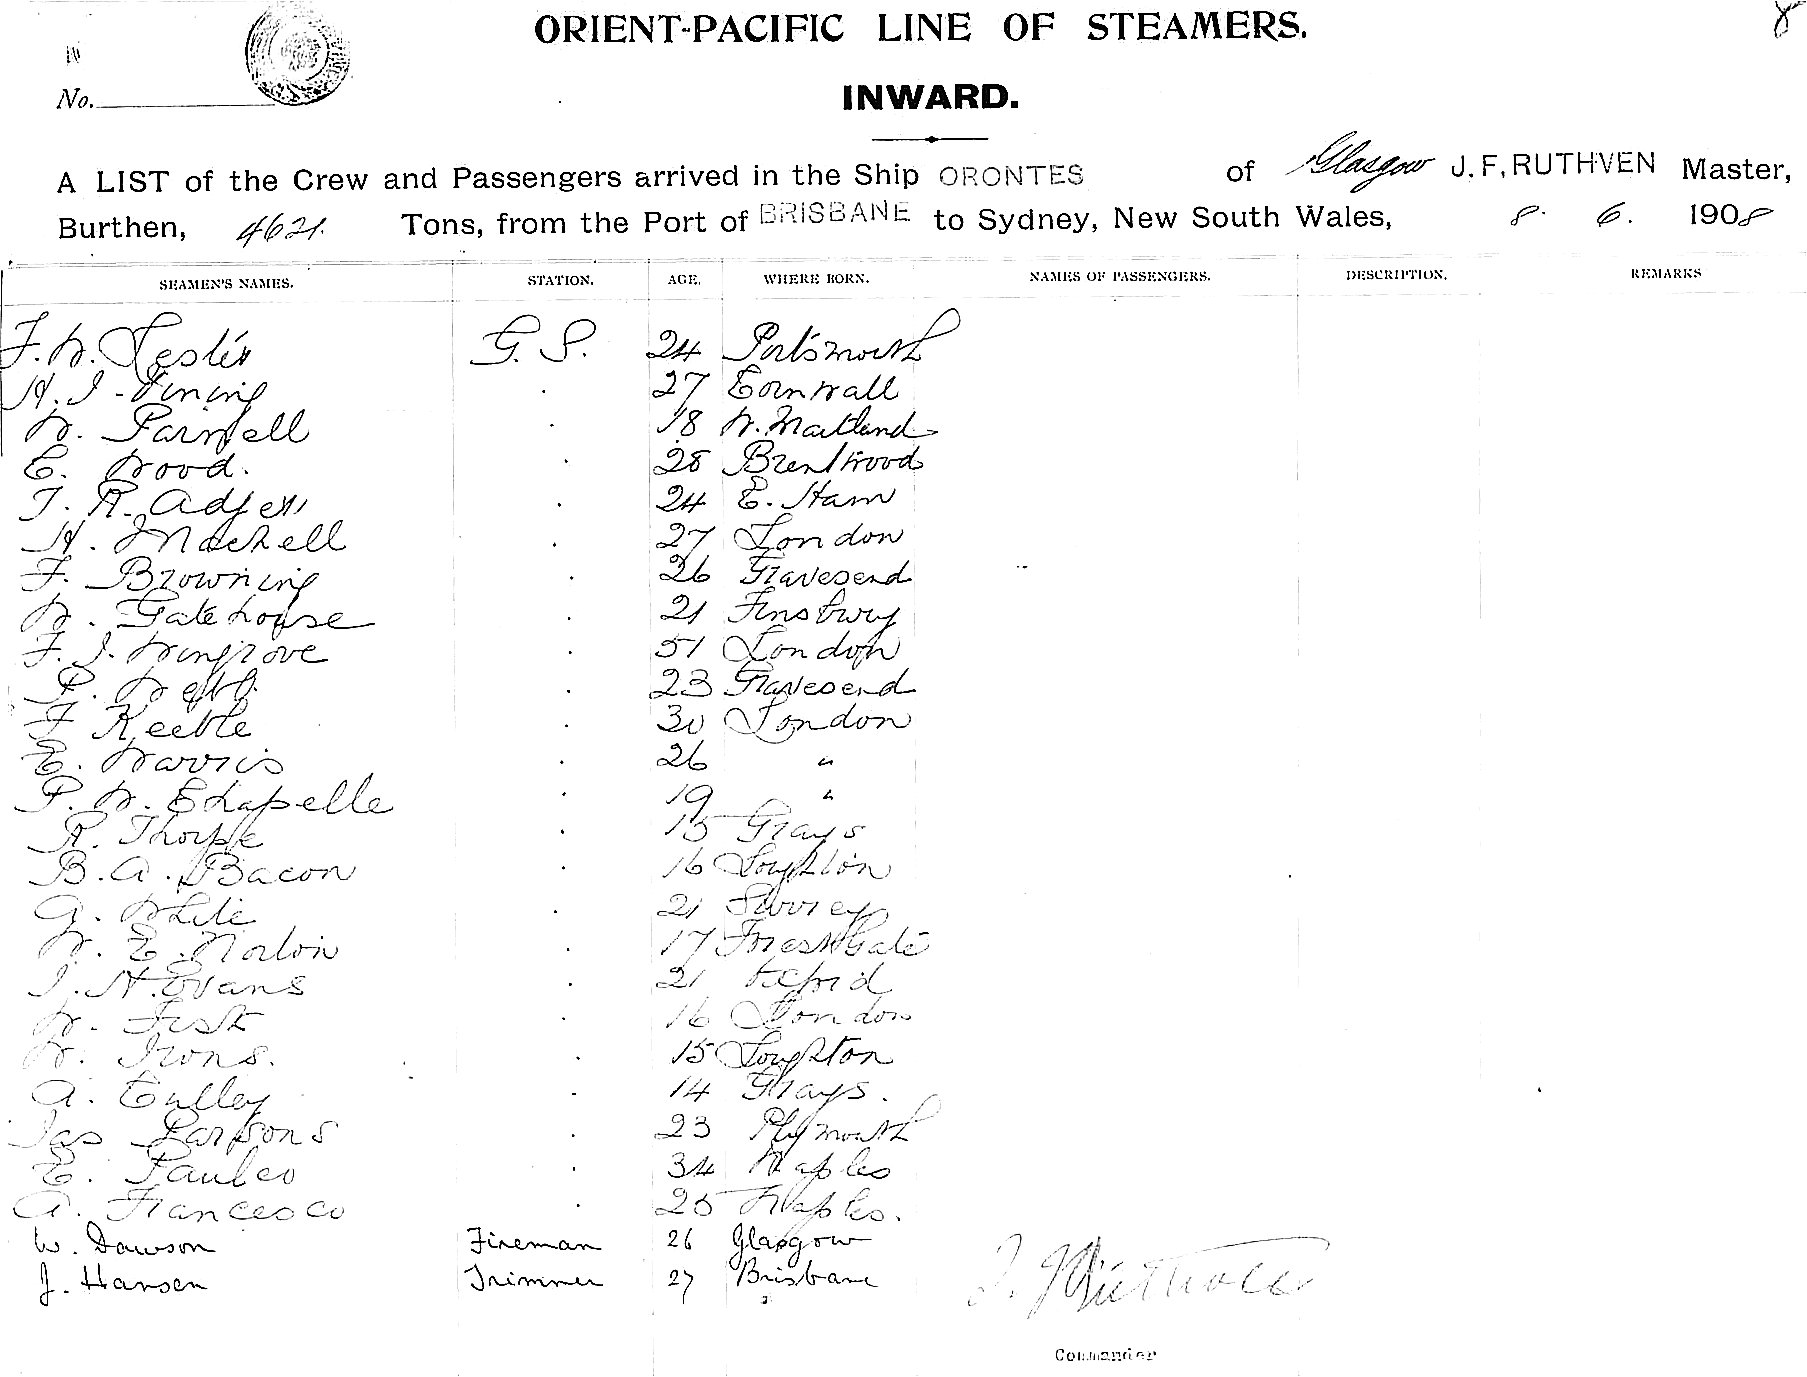 8
ORIENT-PACIFIC LINE OF STEAMERS.
No.
INWARD.
A LIST of the Crew and Passengers arrived in the Ship ORONTES of Glasgow J. F. RUTHVEN Master,
Burthen, 4621. Tons, from the Port of BRISBANE to Sydney, New South Wales, 8. 6. 1908
SEAMEN'S NAMES. STATION. AGE. WHERE BORN. NAMES OF PASSENGERS. DESCRIPTION. REMARKS
F. W. Leslie G. S. 24 Portsmouth
H. J. Vining . 27 Cornwall
W. Parnell . 18 W. Maitland
E. Wood. . 28 Brentwood
T. R. . 24 E. Ham
H. Machell . 27 London
F. Browning . 26 Gravesend
W. Gatehouse . 21 Finsbury
F. J. Wingrove . 51 London
P. Webb. . 23 Gravesend
F Keeble . 30 London
E. Harris . 26 "
P. W. Chapelle . 19 "
R. Thorpe . 15 Grays
B. A. Bacon . 16 Loughton
G. White . 21 Surrey
W. E. Norton . 17 Forest Gate
J. H. Evans . 21
W. Fisk . 16 London
W. Irons. . 15 Loughton
A. Culley . 14 Grays.
Jas Parsons . 23 Plymouth
E. Pauleo . 34 Naples
A. Francesco . 25 Naples.
W. Dawson Fireman 26 Glasgow
J. Hansen Trimmer 27 Brisbane
J. F. Ruthven
Commander